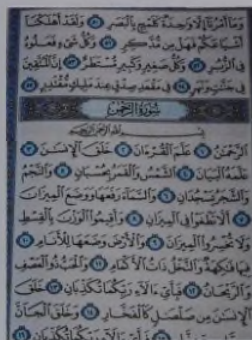 وَمَا أَمْرُنَا إِلَّا وَاحِدَةٌ كَلَمْحٍ بِالْبَصَرِ ٥٠ وَلَقَدْ أَهْلَكْنَا
أَشْيَاعَكُمْ فَهَلْ مِن مُّدَّكِرٍ ٥١ وَكُلُّ شَيْءٍ فَعَلُوهُ
فِي الزُّبُرِ ٥٢ وَكُلُّ صَغِيرٍ وَكَبِيرٍ مُّسْتَطَرٌ ٥٣ إِنَّ الْمُتَّقِينَ
فِي جَنَّاتٍ وَنَهَرٍ ٥٤ فِي مَقْعَدِ صِدْقٍ عِندَ مَلِيكٍ مُّقْتَدِرٍ ٥٥
سُورَةُ الرَّحْمَٰن
بِسْمِ اللَّهِ الرَّحْمَٰنِ الرَّحِيمِ
الرَّحْمَٰنُ ١ عَلَّمَ الْقُرْءَانَ ٢ خَلَقَ الْإِنسَٰنَ ٣
عَلَّمَهُ الْبَيَانَ ٤ الشَّمْسُ وَالْقَمَرُ بِحُسْبَانٍ ٥ وَالنَّجْمُ
وَالشَّجَرُ يَسْجُدَانِ ٦ وَالسَّمَاءَ رَفَعَهَا وَوَضَعَ الْمِيزَانَ
٧ أَلَّا تَطْغَوْا فِي الْمِيزَانِ ٨ وَأَقِيمُوا الْوَزْنَ بِالْقِسْطِ
وَلَا تُخْسِرُوا الْمِيزَانَ ٩ وَالْأَرْضَ وَضَعَهَا لِلْأَنَامِ ١٠
فِيهَا فَاكِهَةٌ وَالنَّخْلُ ذَاتُ الْأَكْمَامِ ١١ وَالْحَبُّ ذُو الْعَصْفِ
وَالرَّيْحَانُ ١٢ فَبِأَيِّ ءَالَاءِ رَبِّكُمَا تُكَذِّبَانِ ١٣ خَلَقَ
الْإِنسَٰنَ مِن صَلْصَالٍ كَالْفَخَّارِ ١٤ وَخَلَقَ الْجَانَّ